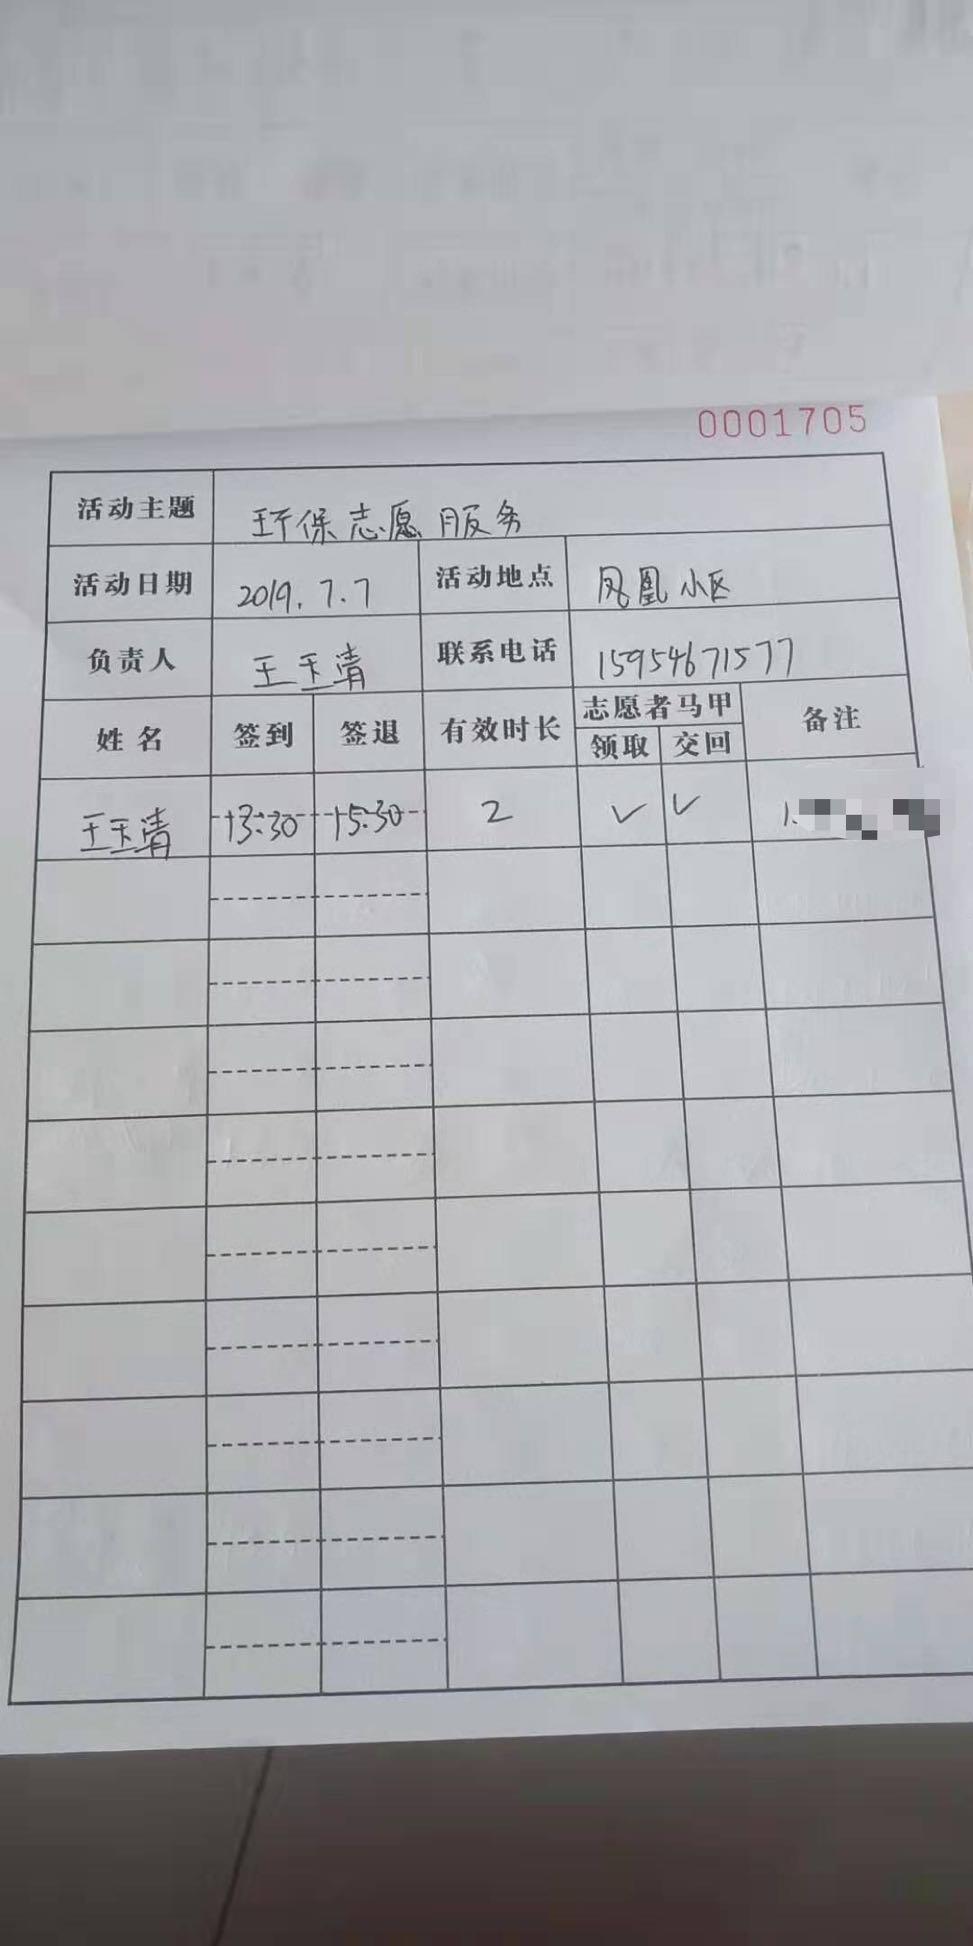 0001705
活动主题 环保志愿服务
活动日期 2019.7.7 活动地点 凤凰小区
负责人 王玉清 联系电话 15954671577
姓名 签到 签退 有效时长 志愿者马甲 备注
领取 交回
王玉清 13:30 15:30 2 ✓ ✓ 1.